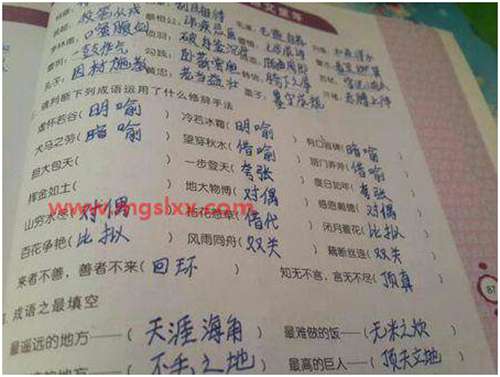 投笔从戎
口蜜腹剑
一鼓作气 破釜沉舟
孔子: 因材施教 勾践: 卧薪尝胆
黄忠: 老当益壮 孟子:
请判断下列成语运用了什么修辞手法
虚怀若谷(明喻) 冷若冰霜(明喻) 有口皆碑(暗喻)
犬马之劳(暗喻) 望穿秋水(借喻) 班门弄斧(借喻)
胆大包天( ) 一步登天(夸张) 度日如年(夸张)
挥金如土( ) 地大物博(对偶) 感恩戴德(对偶)
山穷水尽(对偶) 拈花惹草(借代) 闭月羞花(比拟)
百花争艳(比拟) 风雨同舟(双关) 藕断丝连(双关)
来者不善,善者不来(回环) 知无不言,言无不尽(顶真)
成语之最填空
最遥远的地方——(天涯海角) 最难做的饭——(无米之炊)
的地方——(不毛之地) 最高的巨人——(顶天立地)
87
www.mgslxx.com